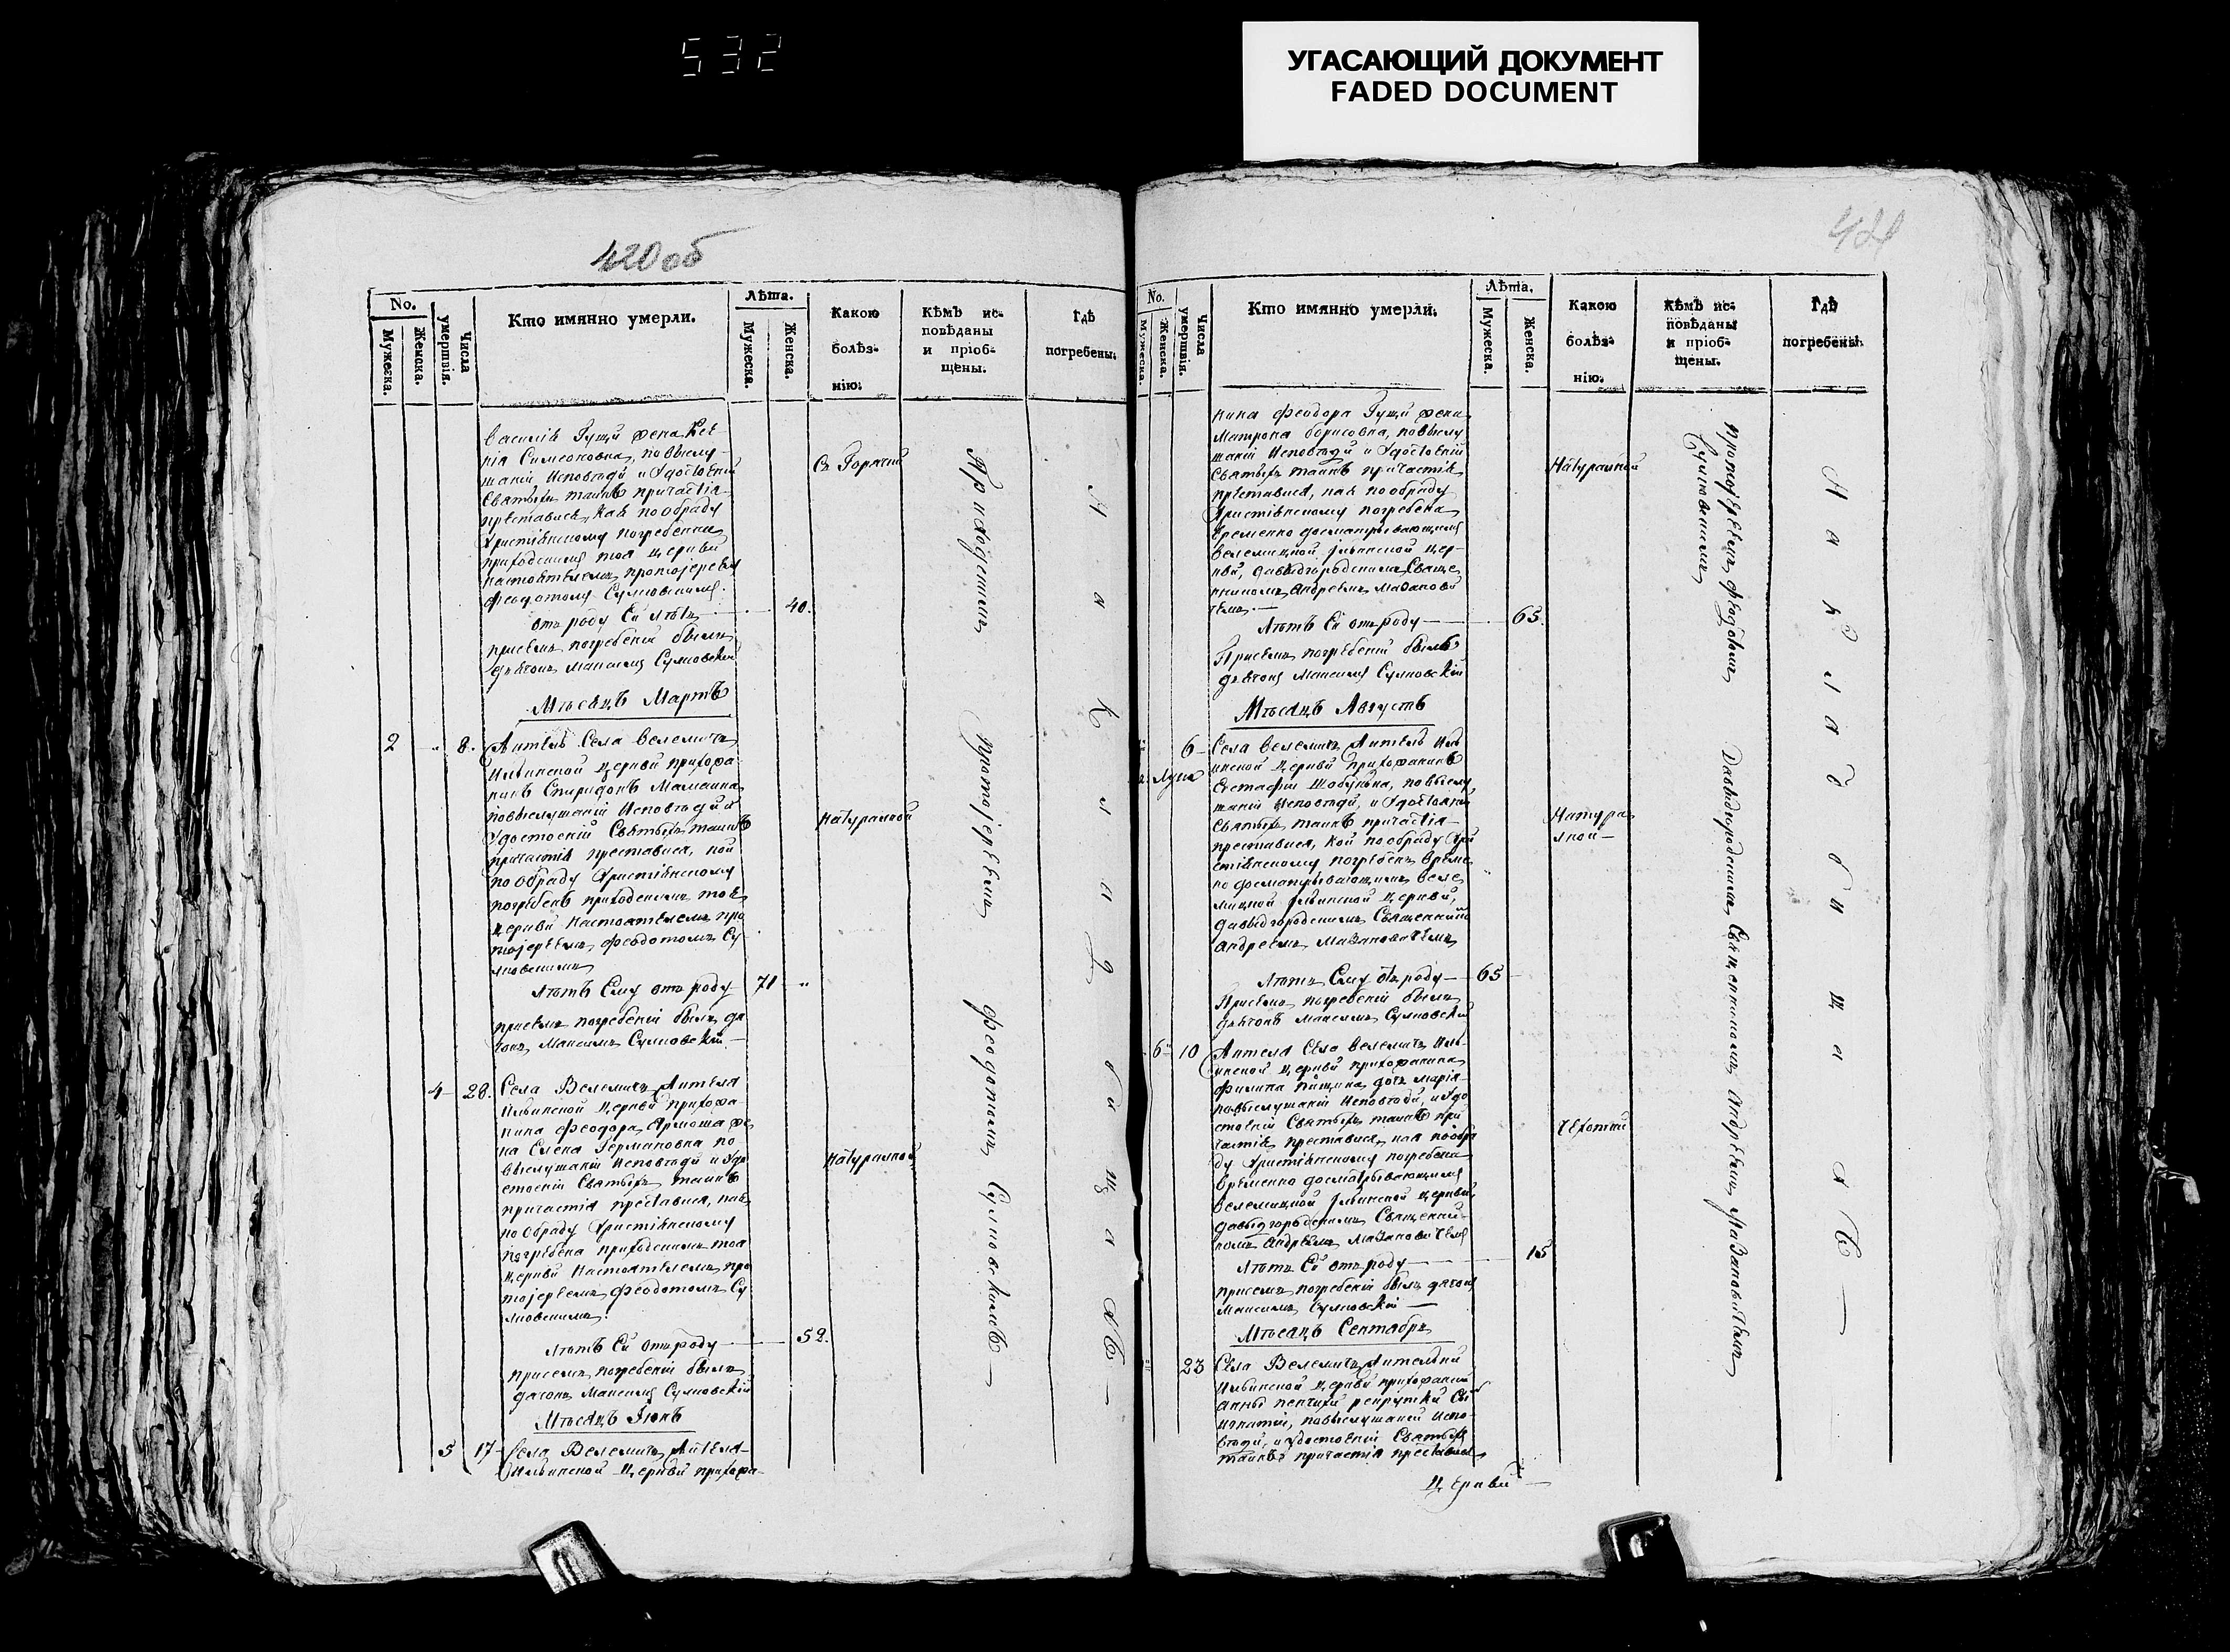 532
УГАСАЮЩИЙ ДОКУМЕНТ
FADED DOCUMENT
420 об
No.
Мужеска.
Женска.
Числа умершвія.
Кто имянно умерли.
Лѣта.
Мужеска.
Женска.
Какою болѣз-нію.
Кѣмъ ис-
повѣданы
и пріоб-
щены.
Гдѣ
погребены.
Василія Гущи жена
Симеоновна, повыслу-
шаніи Исповѣди и Удостоеніи
Святыхъ таинъ причастія
преставися, кая пообряду
Христіянскому погребенна
приходскимъ тоя Церкви
настоятелемъ протоіереемъ
Феодотомъ Сулковскимъ.
отъ роду Ей лѣтъ 40.
присемъ погребеніи былъ
дьячокъ Максимъ Сулковскій
Съ Горячки
Мѣсяцъ Мартъ
2 8. Житель Села Велемичъ
Ильинской Церкви прихожа-
нинъ Спиридонъ
повыслушаніи Исповѣди и
Удостоеніи Святыхъ таинъ
причастія преставися, кой
по Обряду Христіянскому
погребенъ приходскимъ тоя
Церкви Настоятелемъ про
тоіереемъ Феодотомъ Су
лковскимъ
лѣтъ Ему отъ роду 71
присемъ погребеніи былъ дя
чокъ Максимъ Сулковскій.
Натуралной
4 28. Села Велемичъ Жителя
Ильинской Церкви прихожа-
нина Феодора Ярмоша же
на Елена Германовна по
выслушаніи Исповѣди и Удо
стоеніи Святыхъ таинъ
причастія преставися, кая
по Обряду Христіянскому
погребена приходскимъ тоя
Церкви Настоятелемъ про
тоіереемъ Феодотомъ Су
лковскимъ.
лѣтъ Ей отъ роду 52.
присемъ погребеніи былъ
дячокъ Максимъ Сулковскій
Натуралной
Мѣсяцъ Іюнь
5 17 Села Велемичъ Жителя
Ильинской Церкви прихожа-
Приходскимъ протоіереемъ Феодотомъ Сулковскимъ
На кладбищахъ
421
No.
Мужеска.
Женска.
Числа умершвія.
Кто имянно умерли.
Лѣта.
Мужеска.
Женска.
Какою болѣз-нію.
Кѣмъ ис-
повѣданы
и пріоб-
щены.
Гдѣ
погребены.
нина Феодора Гущи жена
Матрона Борисовна, повыслу
шаніи Исповѣди и Удостоеніи
Святыхъ таинъ причастія
преставися, кая пообряду
Христіянскому погребена
временно досматрывающимъ
Велемицкой Ильинской Цер-
кви, Давыдгородскимъ Свяще
нникомъ Андреемъ Мазанови
чемъ.
Лѣтъ Ей отъ роду 65.
Присемъ погребеніи былъ
дьячокъ Максимъ Сулковскій
Натуралной
Мѣсяцъ Августъ
6 Села Велемичъ Житель Иль
инской Церкви прихожанинъ
Евстафій Шобунька, повыслу
шаніи Исповѣди, и Удостоеніи
Святыхъ таинъ причастія
преставися, кой по обряду Хри
стіянскому погребенъ време
но досматрывающимъ Веле
мицкой Ильинской Церкви,
Давыдгородскимъ Священникомъ
Андреемъ Мазановичемъ
Лѣтъ Ему отъ роду 65
Присемъ погребеніи былъ
дьячокъ Максимъ Сулковскій
Натура
лной
6 10 Жителя Села Велемичъ Иль-
инской Церкви прихожанина
Филипа дочь Марія
повыслушаніи Исповѣди, и Удо
стоеніи Святыхъ таинъ при
частія преставися, кая по обря
ду Христіянскому погребена
временно досматрывающимъ
Велемицкой Ильинской Церкви,
Давыдгородскимъ Священни-
комъ Андреемъ Мазановичемъ
Лѣтъ Ей отъ роду 15
присемъ погребеніи былъ дячокъ
Максимъ Сулковскій
чехоткй
Мѣсяцъ Септабрь
23 Села Велемичъ Жителки
Ильинской Церкви прихожанки
Анны рекрутки Сы
Игнатій, повыслушаніи Испо-
вѣди, и удостоеніи Святыхъ
таинъ причастія преставися
Церкви
Протоіереемъ Феодотомъ Сулковскимъ
Давыдгородскимъ Священникомъ Андреемъ Мазановичемъ
На кладбищахъ